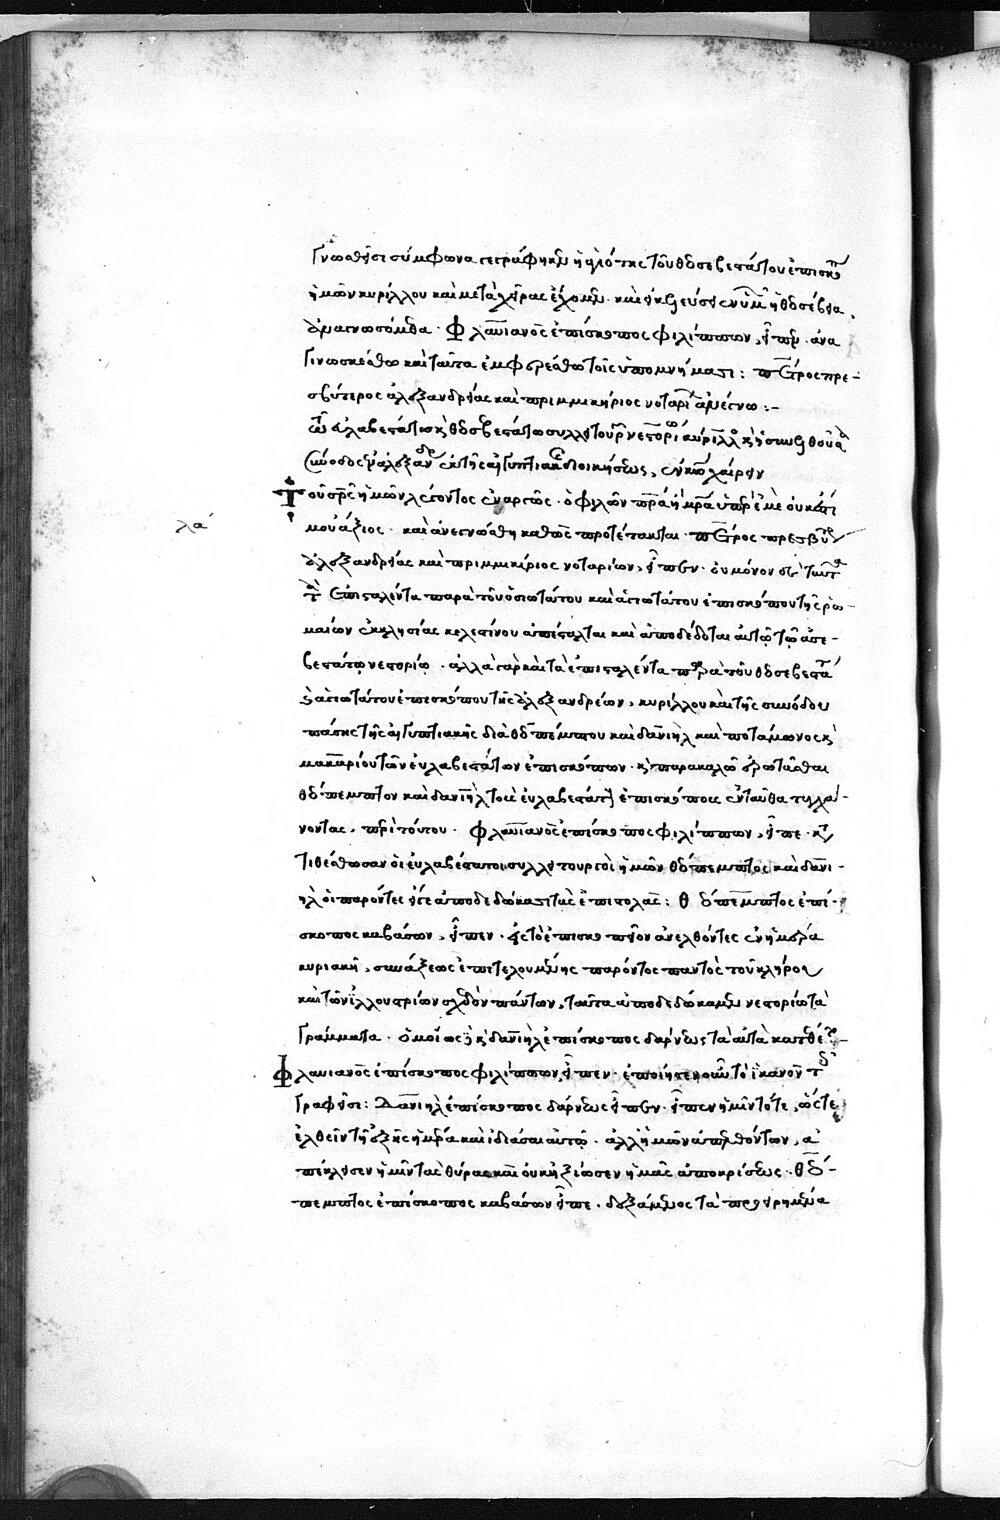 γνωσθεῖσι σύμφωνα γεγράφηκεν ἡ ὁσιότης τοῦ θεοσεβεστάτου ἐπισκό
ἡμῶν κυρίλλου καὶ μετὰ χεῖρας ἔχομεν· καὶ εἰ κελεύει ἡ ὑμῶν ἡ θεοσέβεια,
ἀναγνωσόμεθα· Φλαυϊανὸς ἐπίσκοπος φιλίππων, εἶπεν· ἀνα
γινωσκέσθω καὶ ταῦτα ἐμφερέσθω τοῖς ὑπομνήμασι: πέτρος πρε-
σβύτερος ἀλεξανδρείας καὶ πριμμικήριος νοταρίων ἀνέγνω:-
τῷ εὐλαβεστάτῳ καὶ θεοσεβεστάτῳ συλλειτουργῷ νεστορίῳ κύριλλος καὶ ἡ συνελθοῦσα
σύνοδος ἐν ἀλεξανδρείᾳ ἐκ τῆς αἰγυπτιακῆς διοικήσεως, ἐν κυρίῳ χαίρειν
Τοῦ σωτῆρος ἡμῶν λέγοντος ἐναργῶς· ὁ φιλῶν πατέρα ἢ μητέρα ὑπὲρ ἐμὲ οὐκ ἔστι
λα΄
μου ἄξιος· καὶ ἀνεγνώσθη καθὼς προτέτακται· πέτρος πρεσβύ
ἀλεξανδρείας καὶ πριμμικήριος νοταρίων, εἶπεν· οὐ μόνον δὲ ταῦτα
τὰ ἐπισταλέντα παρὰ τοῦ ὁσιωτάτου καὶ ἁγιωτάτου ἐπισκόπου τῆς ῥω-
μαίων ἐκκλησίας κελεστίνου ἀπέσταλται καὶ ἀποδέδοται αὐτῷ τῷ εὐσε-
βεστάτῳ νεστορίῳ· ἀλλὰ γὰρ καὶ τὰ ἐπισταλέντα παρὰ τοῦ θεοσεβεστά
καὶ ἁγιωτάτου ἐπισκόπου τῆς ἀλεξανδρέων, κυρίλλου καὶ τῆς συνόδου
πάσης τῆς αἰγυπτιακῆς διὰ θεοπέμπτου καὶ δανιὴλ καὶ ποτάμωνος καὶ
μακαρίου τῶν εὐλαβεστάτων ἐπισκόπων· καὶ παρακαλῶ ἐρωτᾶσθαι
θεόπεμπτον καὶ δανιὴλ τοὺς εὐλαβεστάτους ἐπισκόπους ἐνταῦθα τυγχά-
νοντας, περὶ τούτου· Φλαυϊανὸς ἐπίσκοπος φιλίππων, εἶπε· κα
τιθέσθωσαν οἱ εὐλαβέστατοι συλλειτουργοὶ ἡμῶν θεόπεμπτος καὶ δανι-
ὴλ οἱ παρόντες εἴγε ἀποδεδώκασι τὰς ἐπιστολάς: Θεόπεμπτος ἐπί-
σκοπος καβάσων, εἶπεν· εἰς τὸ ἐπισκοπεῖον ἀνελθόντες ἐν ἡμέρᾳ
κυριακῇ, συνάξεως ἐπιτελουμένης παρόντος παντὸς τοῦ κλήρου
καὶ τῶν ἰλλουστρίων σχεδὸν πάντων, ταῦτα ἀποδεδώκαμεν νεστορίῳ τὰ
γράμματα· ὁμοίως καὶ δανιὴλ ἐπίσκοπος δαρνέως τὰ αὐτὰ κατέθε-
Φλαυιανὸς ἐπίσκοπος φιλίππων, εἶπεν· ἐποίησεν οὖν τὸ ἱκανὸν τοῖς
γραφεῖσι: Δανιὴλ ἐπίσκοπος δαρνέως εἶπεν· εἶπεν ἡμῖν τότε, ὥστε
ἐλθεῖν τῇ ἑξῆς ἡμέρᾳ καὶ ἰδιάσαι αὐτῷ· ἀλλ ἡμῶν ἀπελθόντων, ἀ
πέκλεισεν ἡμῖν τὰς θύρας καὶ οὐκ ἠξίωσεν ἡμᾶς ἀποκρίσεως· Θεό-
πεμπτος ἐπίσκοπος καβάσων εἶπε· δεξάμενος τὰ προειρημένα